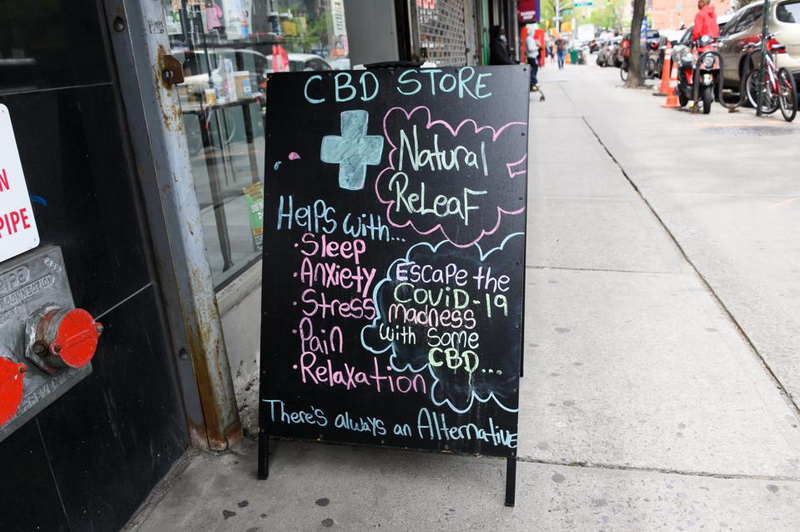 CBD STORE
Natural
ReLeaf
Helps with...
· Sleep
· Anxiety
· Stress
· Pain
· Relaxation
Escape the
COViD-19
madness
with Some
CBD...
There's always an Alternative
N
PIPE